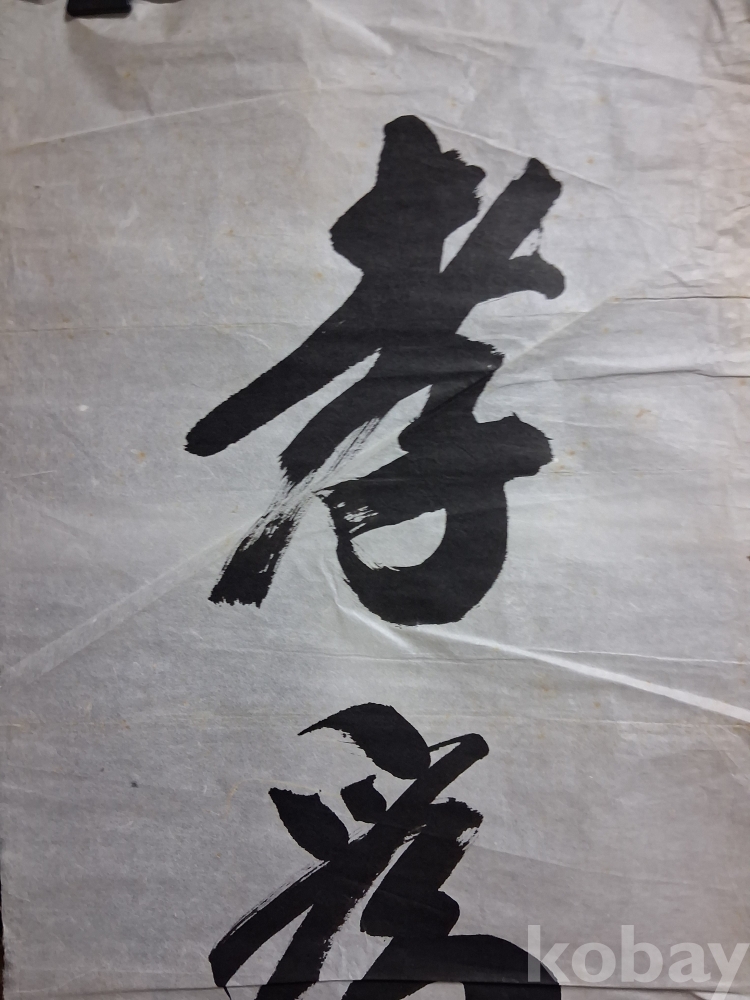 孝
爲
kobay